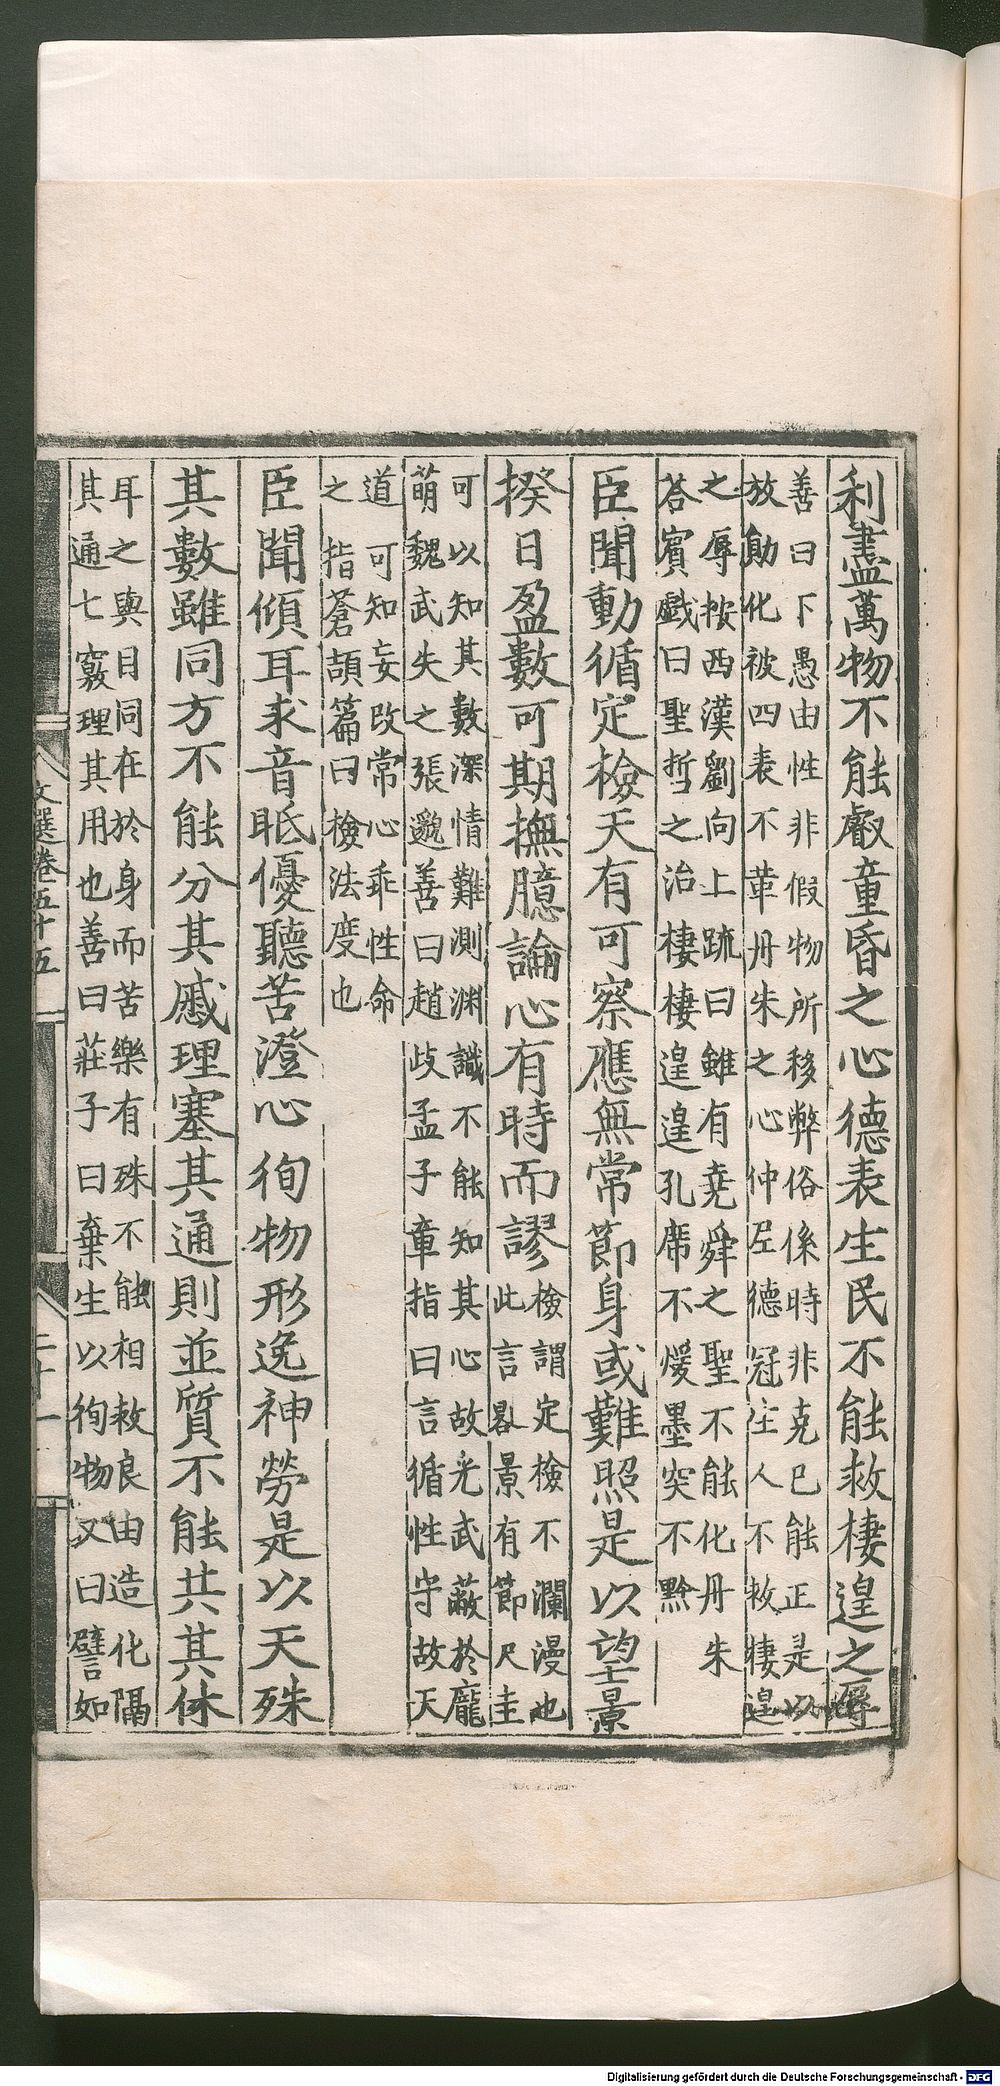 利盡萬物不能叡童昏之心德表生民不能救棲遑之辱
善曰下愚由性非假物所移弊俗係時非克己能正是以
放勛化被四表不革丹朱之心仲尼德冠生人不救棲遑
之辱按西漢劉向上疏曰雖有堯舜之聖不能化丹朱
荅賓戲曰聖哲之治棲棲遑遑孔席不煖墨突不黔
臣聞動循定檢天有可察應無常節身或難照是以望景
揆日盈數可期撫臆論心有時而謬
檢謂定檢不瀾漫也
此言晷景有節尺圭
可以知其數深情難測渊識不能知其心故光武蔽於龐
萌魏武失之張邈善曰趙歧孟子章指曰言循性守故天
道可知妄改常心乖性命
之指蒼頡篇曰檢法度也
臣聞傾耳求音眡優聽苦澄心徇物形逸神勞是以天殊
其數雖同方不能分其慼理塞其通則並質不能共其休
耳之與目同在於身而苦樂有殊不能相救良由造化隔
其通七竅理其用也善曰莊子曰棄生以徇物又曰譬如
文選卷五十五
二十一
Digitalisierung gefördert durch die Deutsche Forschungsgemeinschaft - DFG